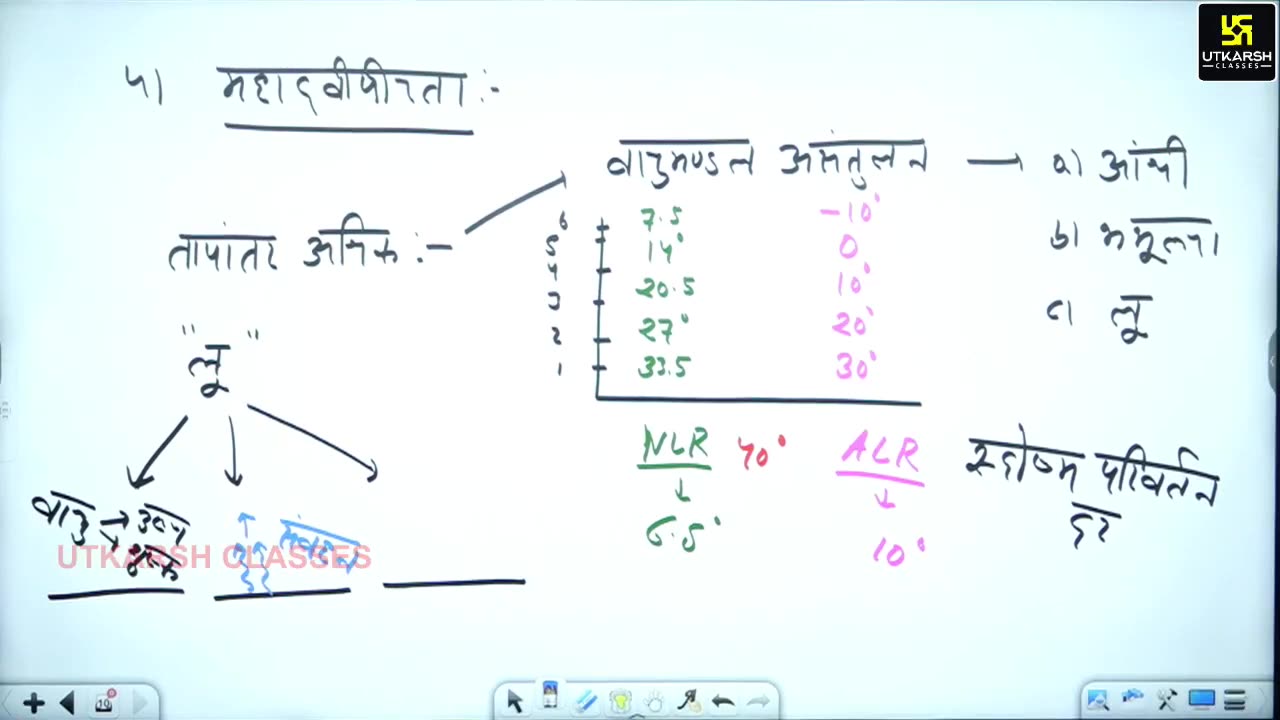 UTKARSH
CLASSES
५) महाद्वीपीरता :-
वायुमण्डल असंतुलन → a) आंधी
b) भभूल्या
c) लू
तापांतर अधिक :-
6 7.5 -10°
5 14° 0
4 20.5 10°
3 27° 20°
2 33.5 30°
1
NLR 40° ALR
6.5° 10°
रूद्धोष्म परिवर्तन
दर
"लू"
वायु → उष्ण
→ शुष्क
संवहन
UTKARSH CLASSES
19